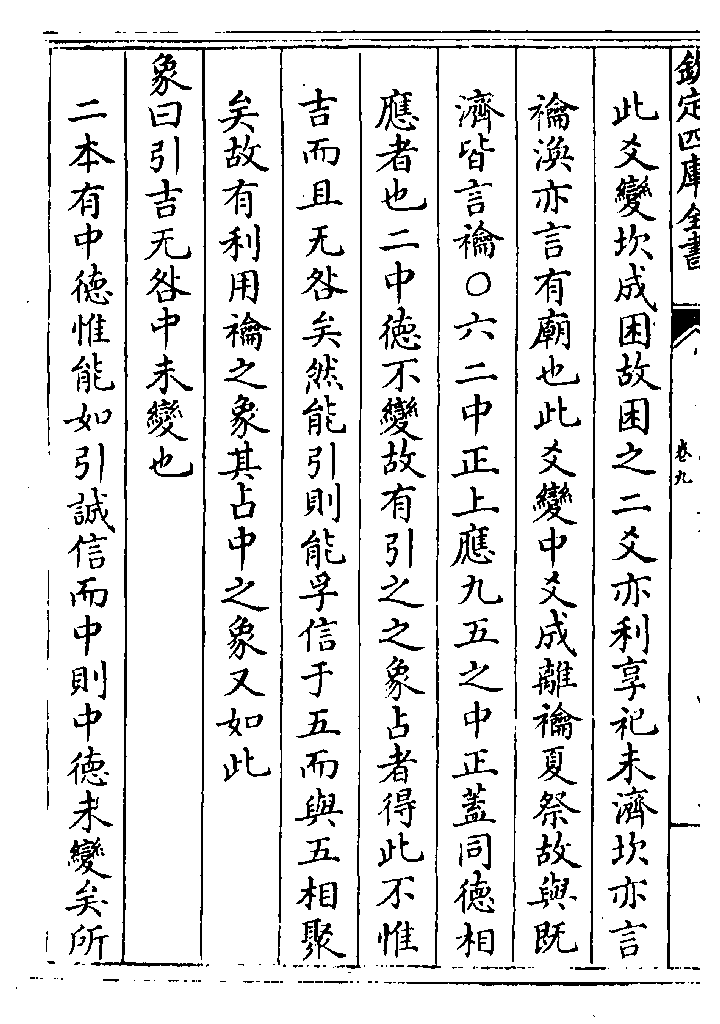 欽定四庫全書
卷九
此爻變坎成困故困之二爻亦利享祀未濟坎亦言
禴渙亦言有廟也此爻變中爻成離禴夏祭故與既
濟皆言禴○六二中正上應九五之中正蓋同德相
應者也二中德不變故有引之之象占者得此不惟
吉而且无咎矣然能引則能孚信于五而與五相聚
矣故有利用禴之象其占中之象又如此
象曰引吉无咎中未變也
二本有中德惟能如引誠信而中則中德未變矣所